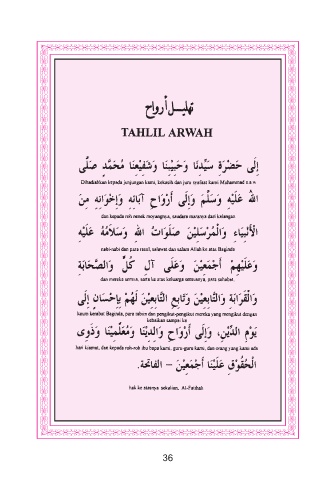 تهليل أرواح
TAHLIL ARWAH
إِلَى حَضْرَةِ سَيِّدِنَا وَحَبِيْبِنَا وَشَفِيْعِنَا مُحَمَّدٍ صَلَّى
Dihadiahkan kepada junjungan kami, kekasih dan juru syafaat kami Muhammad s.a.w
اللهُ عَلَيْهِ وَسَلَّمَ وَإِلَى أَرْوَاحِ آبَائِهِ وَإِخْوَانِهِ مِنَ
dan kepada roh nenek moyangnya, saudara maranya dari kalangan
الْأَنْبِيَاءِ وَالْمُرْسَلِيْنَ صَلَوَاتُ اللهِ وَسَلَامُهُ عَلَيْهِ
nabi-nabi dan para rasul, salawat dan salam Allah ke atas Baginda
وَعَلَيْهِمْ أَجْمَعِيْنَ وَعَلَى آلِ كُلٍّ وَالصَّحَابَةِ
dan mereka semua, serta ke atas keluarga semuanya, para sahabat,
وَالْقَرَابَةِ وَالتَّابِعِيْنَ وَتَابِعِ التَّابِعِيْنَ لَهُمْ بِإِحْسَانٍ إِلَى
kaum kerabat Baginda, para tabien dan pengikut-pengikut mereka yang mengikut dengan
kebaikan sampai ke
يَوْمِ الدِّيْنِ، وَإِلَى أَرْوَاحِ وَالِدِيْنَا وَمُعَلِّمِيْنَا وَذَوِى
hari kiamat, dan kepada roh-roh ibu bapa kami, guru-guru kami, dan orang yang kami ada
الْحُقُوْقِ عَلَيْنَا أَجْمَعِيْنَ – الفاتحة.
hak ke atasnya sekalian, Al-Fatihah
36